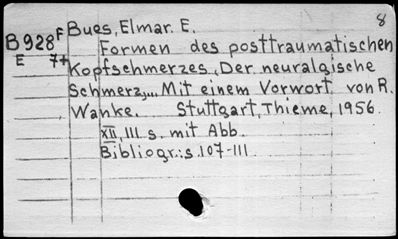 8
B928F Bues, Elmar. E.
E 7+ Formen des posttraumatischen
Kopfschmerzes, Der neuralgische
Schmerz,... Mit einem Vorwort von R.
Wanke. Stuttgart, Thieme, 1956.
XII, 111 s. mit Abb.
Bibliogr.: s. 107-111.